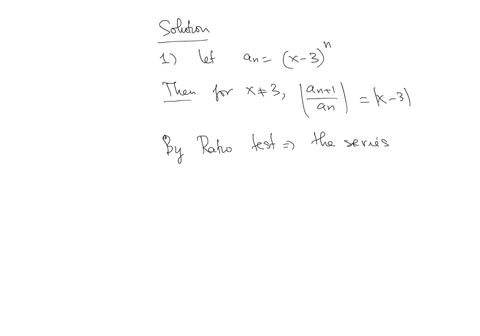 Solution
1) let an = (x-3)^n
Then for x≠3, |an+1/an| = |x-3)
By Ratio test => the series